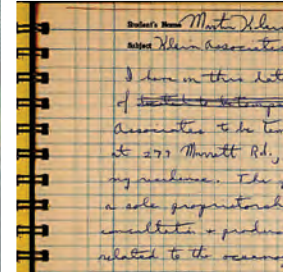 Student's Name Martin Klein
Subject Klein Associates
I have on this dat
of
Associates to be tem
at 277 Marrett Rd.,
my residence. The
a sole proprietorsh
consultation & produ
related to the oceano